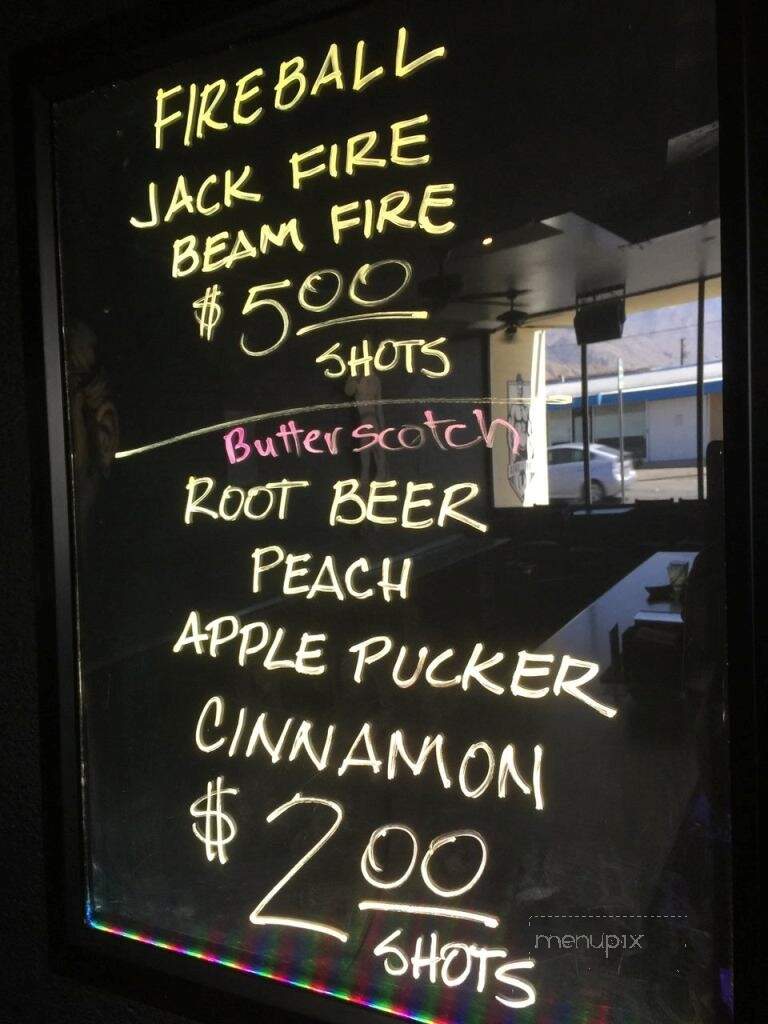 FIREBALL
JACK FIRE
BEAM FIRE
$5.00
SHOTS
Butterscotch
ROOT BEER
PEACH
APPLE PUCKER
CINNAMON
$2.00
SHOTS
menupix